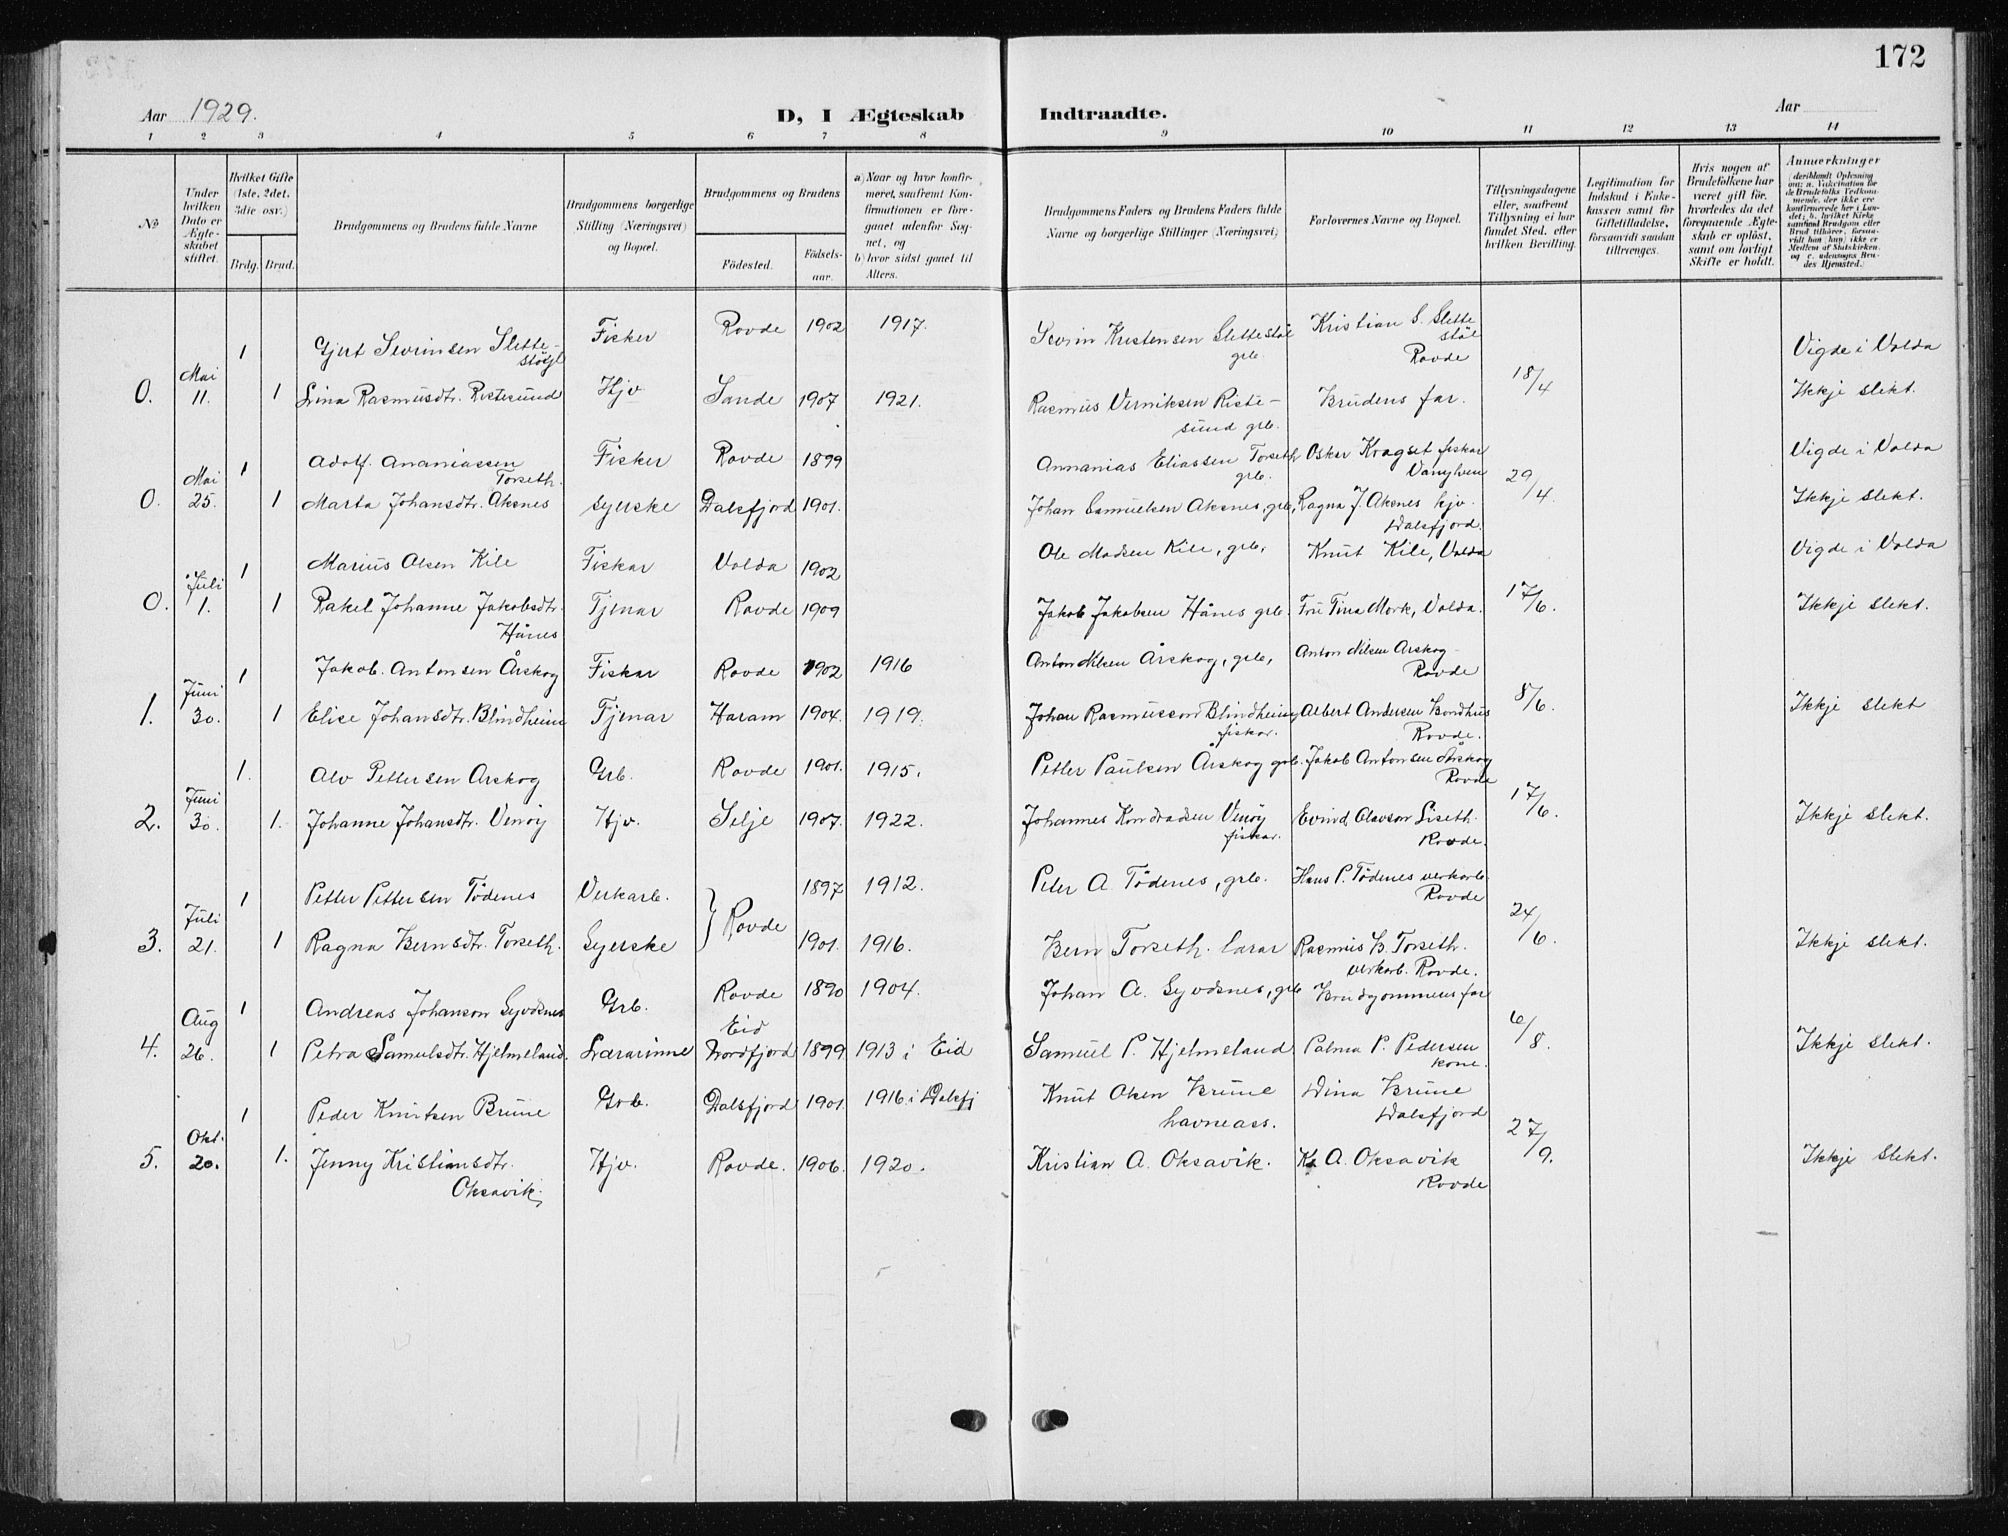 172
Aar 1929.
D, I Ægteskab Indtraadte.
Aar
1 2 3 4 5 6 7 8 9 10 11 12 13 14
No
Under hvilken Dato er Ægteskabet stiftet.
Hvilket Gifte (1ste, 2det, 3die osv.)
Brdg. Brud.
Brudgommens og Brudens fulde Navne
Brudgommens borgerlige Stilling (Næringsvei) og Bopæl.
Brudgommens og Brudens
Fødested.
Fødselsaar.
a) Naar og hvor konfirmeret, saafremt Konfirmationen er foregaaet udenfor Sognet, og
b) hvor sidst gaaet til Alters.
Brudgommens Faders og Brudens Faders fulde Navne og borgerlige Stillinger (Næringsvei)
Forlovernes Navne og Bopæl.
Tillysningsdagene eller, saafremt Tillysning ei har fundet Sted, efter hvilken Bevilling.
Legitimation for Indskud i Enkekassen samt for Giftetilladelse, forsaavidt saadan tiltrænges.
Hvis nogen af Brudefolkene har været gift før, hvorledes da det foregaaende Ægteskab er opløst, samt om lovligt Skifte er holdt.
Anmærkninger
(deriblandt Oplysning om: a. Vakcination for de Brudefolks Vedkommende, der ikke ere konfirmerede her i Landet; b. hvilket Kirkesamfund Brudgom eller Brud tilhører, forsaavidt han (hun) ikke er Medlem af Statskirken, og c. udensogns Brudes Hjemsted.)
1 Gjert Sevrinsen Slette-støyl Fisker Rovde 1902 1917. Sevrin Kristensen Slettestøl grb. Kristian S. Slettestøl Rovde Vigde i Volda
0. Mai 11. 1 Lina Rasmusdtr. Ristesund Hjv Sande 1907 1921. Rasmus Verniksen Riste-sund grb. Brudens far. 18/4 Ikkje slekt.
1 Adolf Ananiassen Torseth. Fisker Rovde 1899 Annanias Eliassen Torseth grb. Oskar Kragset fiskar Vanylven Vigde i Volda
0. Mai 25. 1 Marta Johansdtr. Aksnes syerske Dalsfjord 1901. Johan Samuelsen Aksnes, grb, Ragna J. Aksnes hjv. Dalsfjord. 29/4 Ikkje slekt.
1 Marius Olsen Kile Fiskar Volda 1902 Ole Madsen Kile, grb, Knut Kile, Volda Vigde i Volda
0. Juli 1. 1 Rakel Johanne Jakobsdtr. Hånes Tjenar Rovde 1909 Jakob Jakobsen Hånes grb. Fru Tina Mork, Volda. 17/6. Ikkje slekt.
1 Jakob Antonsen Årskog Fiskar Rovde 1902 1916 Anton Nilsen Årskog, grb, Anton Nilsen Arskog Rovde
1. Juni 30. 1 Elise Johansdtr. Blindheim Tjenar Haram 1904. 1919. Johan Rasmusson Blindheim, fiskar. Albert Andersen Bondhus Rovde. 8/6. Ikkje slekt
1. Alv Pettersen Arskog Grb. Rovde 1901. 1915. Petter Paulsen Årskog grb. Jakob Antonsen Årskog Rovde
2. Juni 30. 1. Johanne Johansdtr. Venøy Hjv. Selje 1907. 1922. Johannes Kondradsen Venøy fiskar. Evind Olavson Liseth. Rovde. 17/6. Ikkje slekt.
1 Petter Pettersen Tödenes Verkarb. Rovde 1897 1912. Peter A. Tödenes, grb. Hans P. Tödenes verkarb. Rovde
3. Juli 21. 1 Ragna Bernsdtr. Torseth. Syerske 1901. 1916. Bern Torseth. lærar Rasmus B. Torseth. verkarb. Rovde. 24/6. Ikkje slekt.
1 Andreas Johanson Syvdsnes Grb. Rovde 1890 1904. Johan A. Syvdsnes, grb Brudgommens far
4. Aug 26. 1 Petra Samulsdtr. Hjelmeland. Lærarinne Eid Nordfjord 1899. 1913 i Eid Samuel P. Hjelmeland Palma P. Pedersen kone. 6/8. Ikkje slekt.
1 Peder Knutsen Brune Grb. Dalsfjord 1901. 1916. i Dalsfj Knut Olsen Brune havneass. Dina Brune Dalsfjord
5. Okt. 20. 1. Jenny Kristiansdtr. Oksavik. Hjv. Rovde. 1906. 1920. Kristian A. Oksavik. K. A. Oksavik Rovde 27/9. Ikkje slekt.